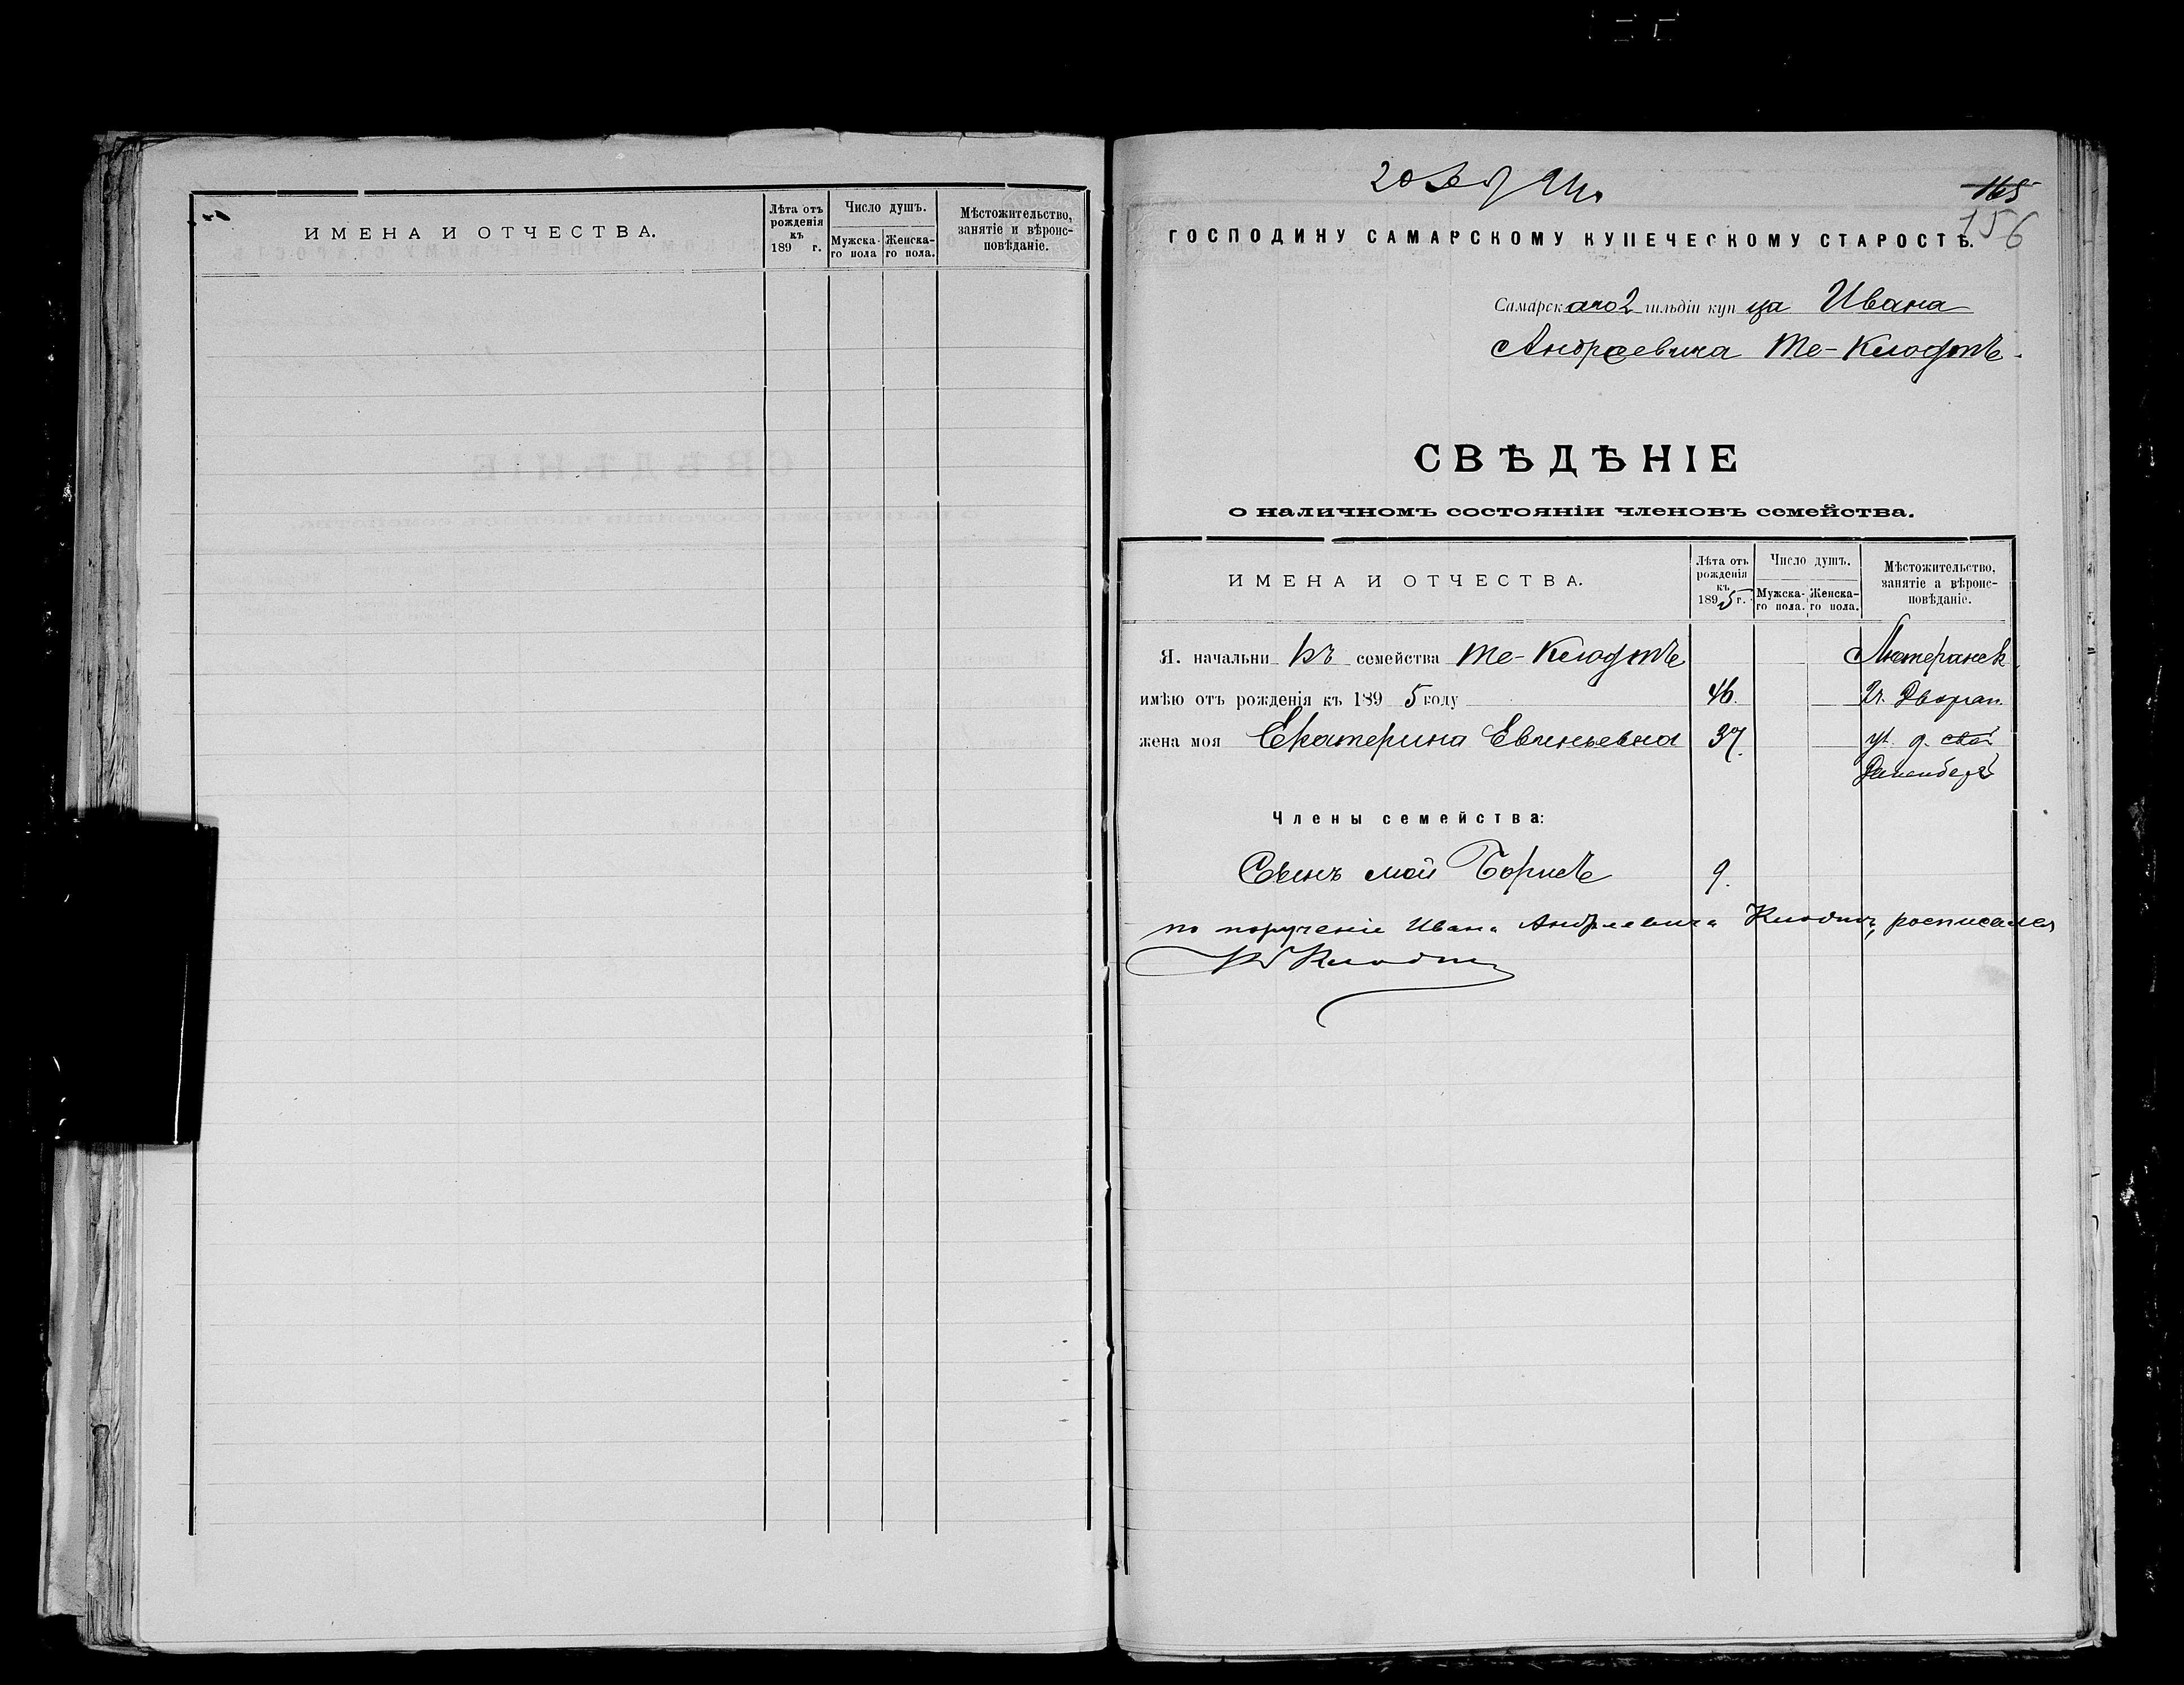 ИМЕНА И ОТЧЕСТВА.
Лѣта отъ рожденія къ 189 г.
Число душъ.
Мужска-го пола
Женска-го пола.
Мѣстожительство, занятіе и вѣроис-повѣданіе.
20
165
156
ГОСПОДИНУ САМАРСКОМУ КУПЕЧЕСКОМУ СТАРОСТѢ.
Самарскаго 2 гильдіи купца Ивана
Андреевича Те-Клодтъ.
СВѢДѢНІЕ
о наличномъ состояніи членовъ семейства.
ИМЕНА И ОТЧЕСТВА.
Лѣта отъ рожденія къ 1895 г.
Число душъ.
Мужска-го пола.
Женска-го пола.
Мѣстожительство, занятіе а вѣроис-повѣданіе.
Я. начальникъ семейства Те-Клодтъ Лютеранск
имѣю отъ рожденія къ 1895 году 46. 2 ч. Дворян.
жена моя Екатерина Евгеньевна 37. ул. д.
Члены семейства:
Сынъ мой Борисъ 9.
по порученіе Ивана Андреевича Клодтъ росписался
Клодтъ